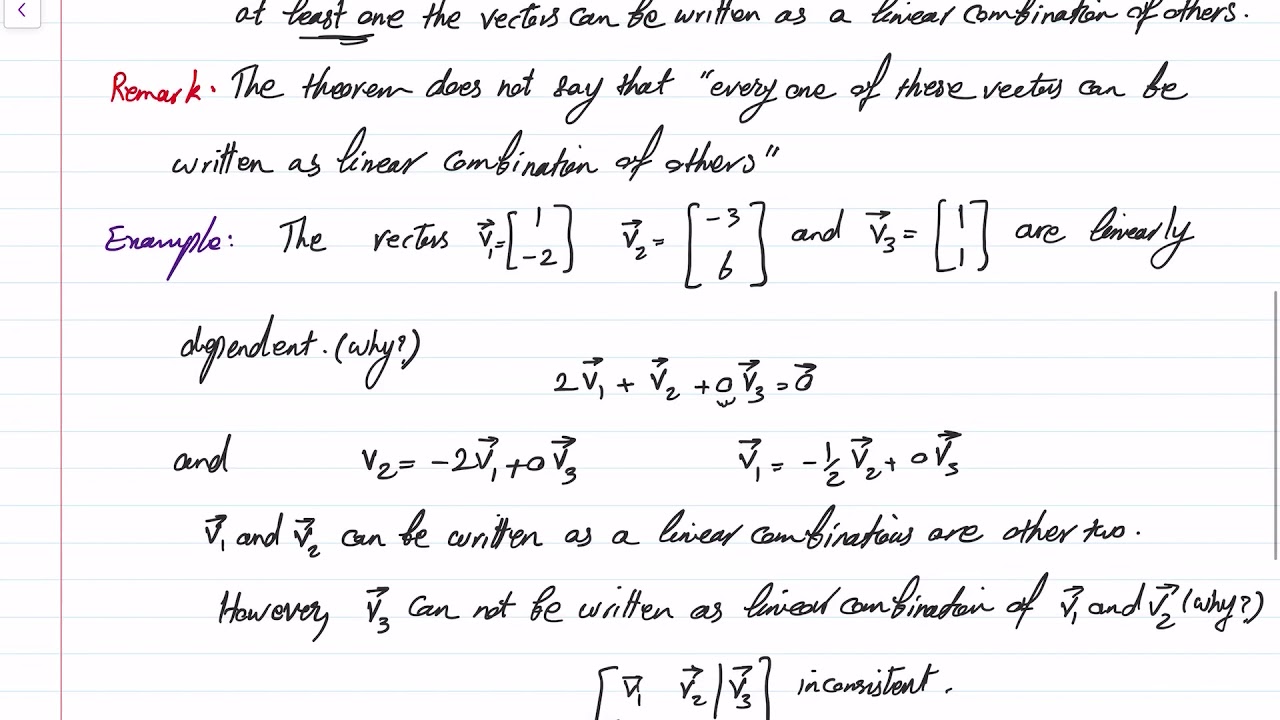 at least one the vectors can be written as a linear combination of others.
Remark. The theorem does not say that "every one of these vectors can be
written as linear combination of others"
Example: The vectors v⃗₁ = [1 -2] v⃗₂ = [-3 6] and v⃗₃ = [1 1] are linearly
dependent. (why?)
2v⃗₁ + v⃗₂ + 0v⃗₃ = 0⃗
and v₂ = -2v⃗₁ + 0v⃗₃ v⃗₁ = -1/2 v⃗₂ + 0v⃗₃
v⃗₁ and v⃗₂ can be written as a linear combinations are other two.
However v⃗₃ can not be written as linear combination of v⃗₁ and v⃗₂ (why?)
[v⃗₁ v⃗₂ | v⃗₃] inconsistent.